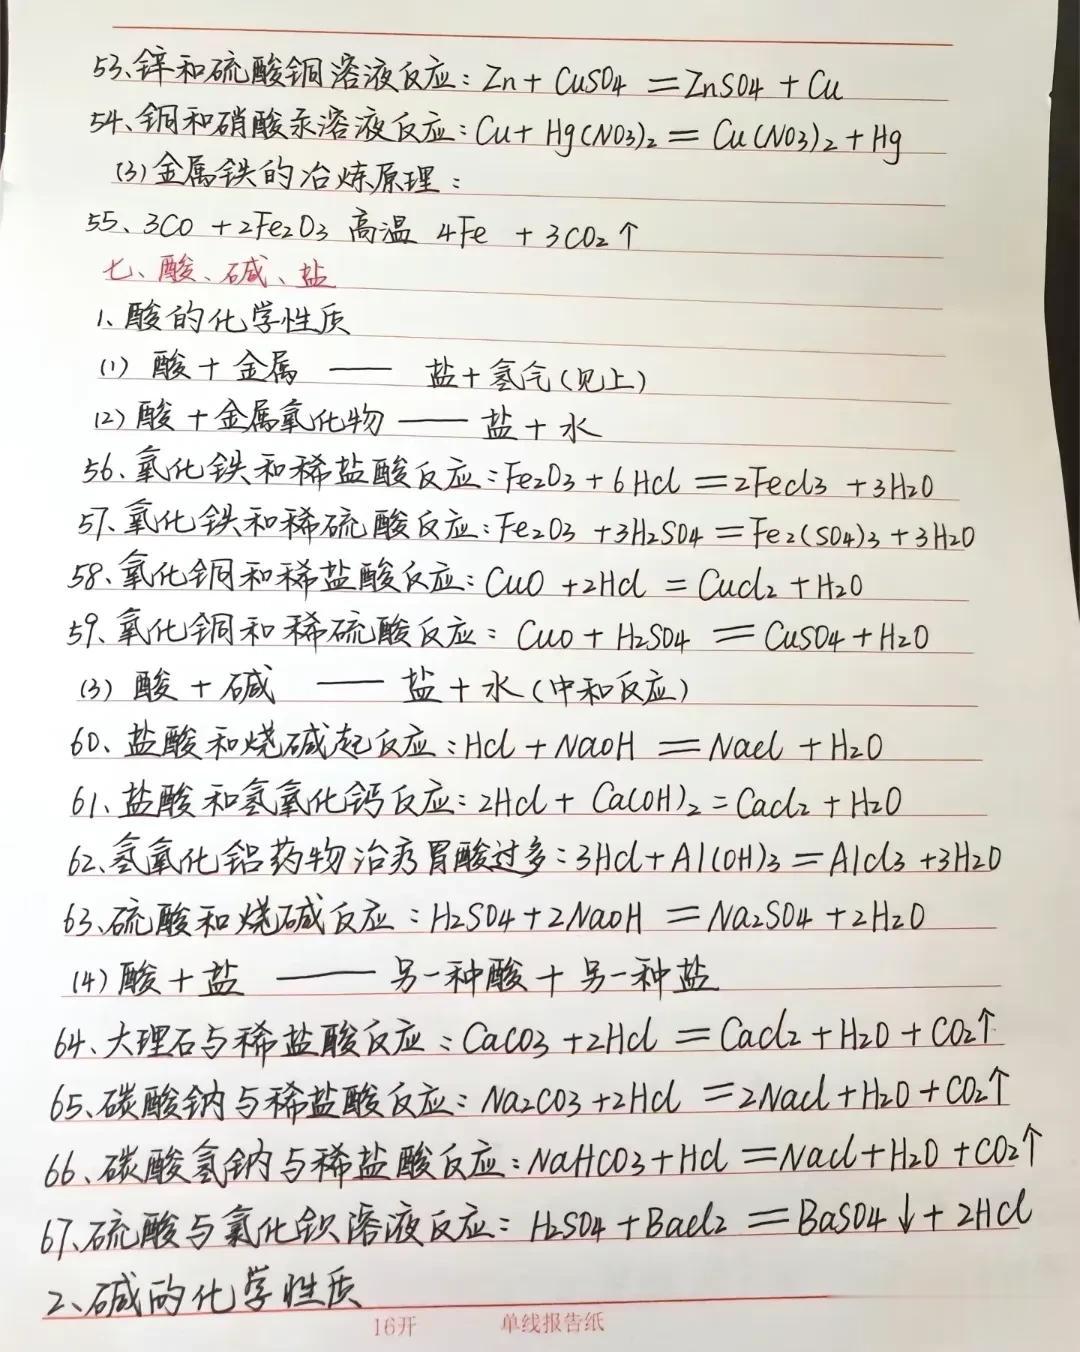 53、锌和硫酸铜溶液反应：Zn + CuSO4 = ZnSO4 + Cu
54、铜和硝酸汞溶液反应：Cu + Hg(NO3)2 = Cu(NO3)2 + Hg
(3)金属铁的冶炼原理：
55、3CO + 2Fe2O3 高温 4Fe + 3CO2↑
七、酸、碱、盐
1、酸的化学性质
(1) 酸 + 金属 —— 盐 + 氢气(见上)
(2) 酸 + 金属氧化物 —— 盐 + 水
56、氧化铁和稀盐酸反应：Fe2O3 + 6HCl = 2FeCl3 + 3H2O
57、氧化铁和稀硫酸反应：Fe2O3 + 3H2SO4 = Fe2(SO4)3 + 3H2O
58、氧化铜和稀盐酸反应：CuO + 2HCl = CuCl2 + H2O
59、氧化铜和稀硫酸反应：CuO + H2SO4 = CuSO4 + H2O
(3) 酸 + 碱 —— 盐 + 水(中和反应)
60、盐酸和烧碱起反应：HCl + NaOH = NaCl + H2O
61、盐酸和氢氧化钙反应：2HCl + Ca(OH)2 = CaCl2 + H2O
62、氢氧化铝药物治疗胃酸过多：3HCl + Al(OH)3 = AlCl3 + 3H2O
63、硫酸和烧碱反应：H2SO4 + 2NaOH = Na2SO4 + 2H2O
(4) 酸 + 盐 —— 另一种酸 + 另一种盐
64、大理石与稀盐酸反应：CaCO3 + 2HCl = CaCl2 + H2O + CO2↑
65、碳酸钠与稀盐酸反应：Na2CO3 + 2HCl = 2NaCl + H2O + CO2↑
66、碳酸氢钠与稀盐酸反应：NaHCO3 + HCl = NaCl + H2O + CO2↑
67、硫酸与氯化钡溶液反应：H2SO4 + BaCl2 = BaSO4↓ + 2HCl
2、碱的化学性质
16开 单线报告纸